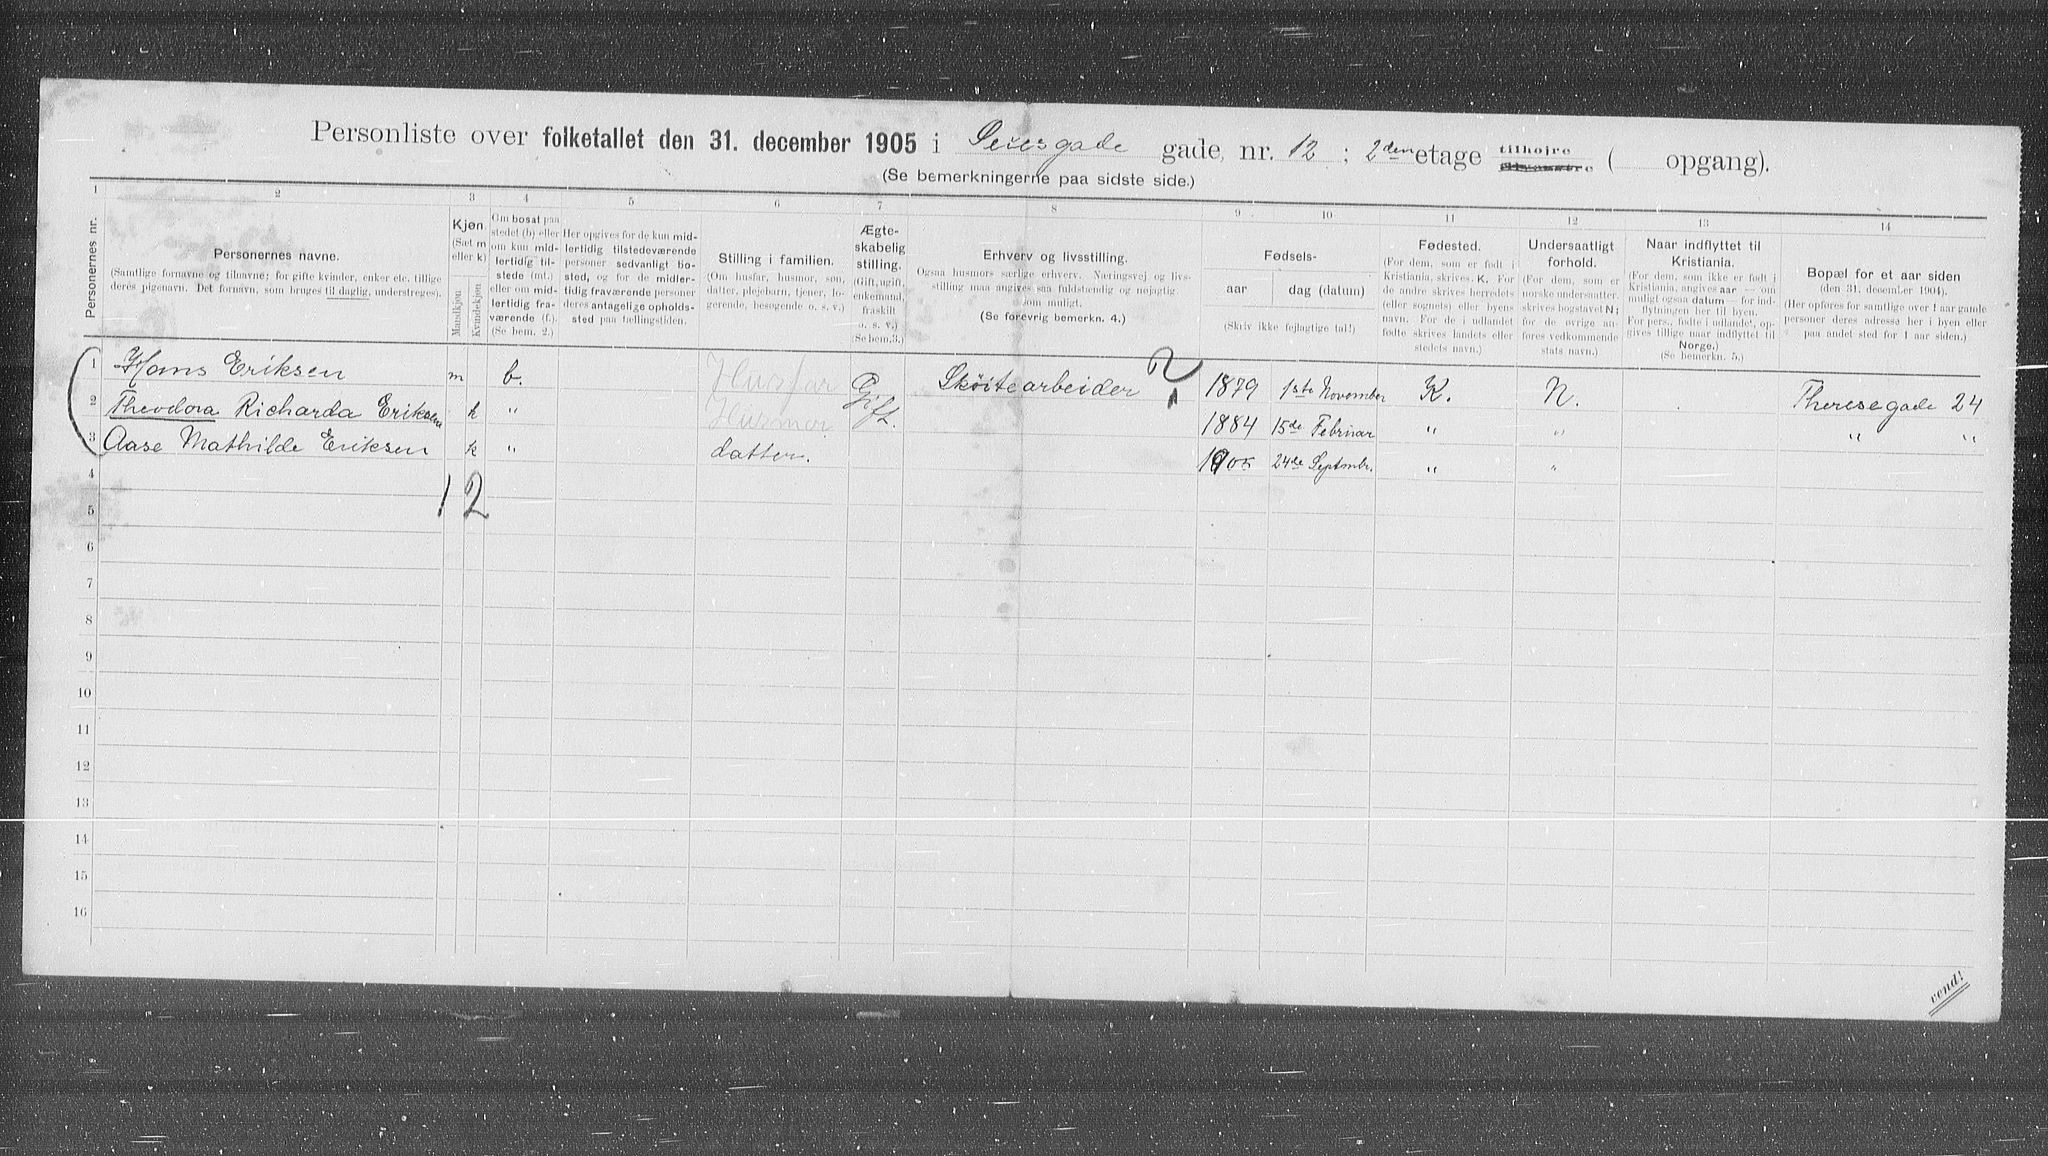 Personliste over folketallet den 31. december 1905 i Seiersgade gade, nr. 12 ; 2den etage tilhøjre ( opgang).
(Se bemerkningerne paa sidste side.)
1 2 3 4 5 6 7 8 9 10 11 12 13 14
Personernes nr.
Personernes navne.
(Samtlige fornavne og tilnavne; for gifte kvinder, enker etc. tillige
deres pigenavn. Det fornavn, som bruges til daglig, understreges).
Kjøn.
(Sæt m
eller k)
Mandkjøn
Kvindekjøn
Om bosat paa
stedet (b) eller
om kun mid-
lertidig til-
stede (mt.)
eller om mid-
lertidig fra-
værende (f.).
(Se bem. 2.)
Her opgives for de kun mid-
lertidig tilstedeværende
personer sedvanligt bo-
sted, og for de midler-
tidig fraværende personer
deres antagelige opholds-
sted paa tællingstiden.
Stilling i familien.
(Om husfar, husmor, søn,
datter, plejebarn, tjener, lo-
gerende, besøgende o. s. v.)
Ægte-
skabelig
stilling.
(Gift, ugift,
enkemand,
fraskilt
o. s. v.)
(Se bem.3.)
Erhverv og livsstilling.
Ogsaa husmors særlige erhverv. Næringsvej og livs-
stilling maa angives saa fuldstændig og nøjagtig
som muligt.
(Se forøvrig bemerkn. 4.)
Fødsels-
aar
dag (datum)
(Skriv ikke fejlagtige tal!)
Fødested.
(For dem, som er født i
Kristiania, skrives K. For
de andre skrives herredets
(eller sognets) eller byens
navn. – For de i udlandet
fødte skrives landets eller
stedets navn.)
Undersaatligt
forhold.
(For dem, som er
norske undersaatter,
skrives bogstavet N;
for de øvrige an-
føres vedkommende
stats navn.)
Naar indflyttet til
Kristiania.
(For dem, som ikke er født i
Kristiania, angives aar — om
muligt ogsaa datum — for ind-
flytningen her til byen.
For pers., fødte i udlandet, op-
gives tillige naar indflyttet til
Norge.)
(Se bemerkn. 5.)
Bopæl for et aar siden
(den 31. desember 1904).
(Her opføres for samtlige over 1 aar gamle
personer deres adresse her i byen eller
paa andet sted for 1 aar siden.)
1 Hans Eriksen m b. Husfar Gift. Skøitearbeider 2 1879 1ste November K. N. Theresegade 24
2 Theodora Richarda Eriksen k " Husmor 1884 15de Februar " " " "
3 Aase Mathilde Eriksen k " datter. 1905 24de Septmbr. " "
4
1 2
5
6
7
8
9
10
11
12
13
14
15
16
vend!